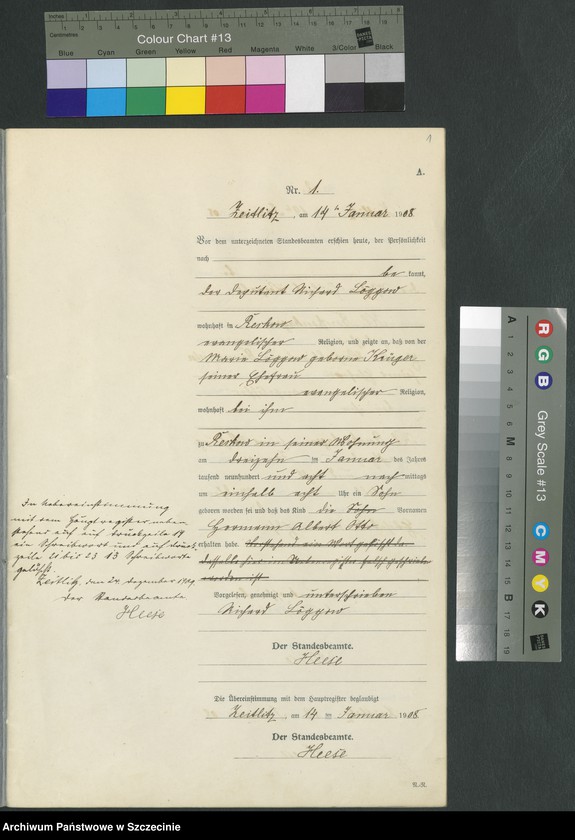 Colour Chart #13
Blue Cyan Green Yellow Red Magenta White 3/Color Black
1
A.
Nr. 1.
Zeitlitz, am 14ten Januar 1908
Vor dem unterzeichneten Standesbeamten erschien heute, der Persönlichkeit
nach
be kannt,
der Deputant Richard Löggow
wohnhaft in Reckow
evangelischer Religion, und zeigte an, daß von der
Marie Löggow geborene Krüger
seiner Ehefrau
evangelischer Religion,
wohnhaft bei ihm
zu Reckow in seiner Wohnung
am dreizehn ten Januar des Jahres
tausend neunhundert und acht nach mittags
um einhalb acht Uhr ein Sohn
geboren worden sei und daß das Kind die Vornamen
Hermann Albert Otto
erhalten habe.
Vorgelesen, genehmigt und unterschrieben
Richard Löggow
Der Standesbeamte.
Heese
Die Übereinstimmung mit dem Hauptregister beglaubigt
Zeitlitz, am 14 ten Januar 1908
Der Standesbeamte.
Heese
In Uebereinstimmung
mit dem Hauptregister neben
stehend auf auf Druckzeile 19
ein Schreibwort und auf Druck
zeile 21 bis 23 13 Schreibworte
gelöscht.
Zeitlitz, den 24. Dezember 1909
Der Standesbeamte
Heese
Grey Scale #13
R G B C M Y K
Archiwum Państwowe w Szczecinie